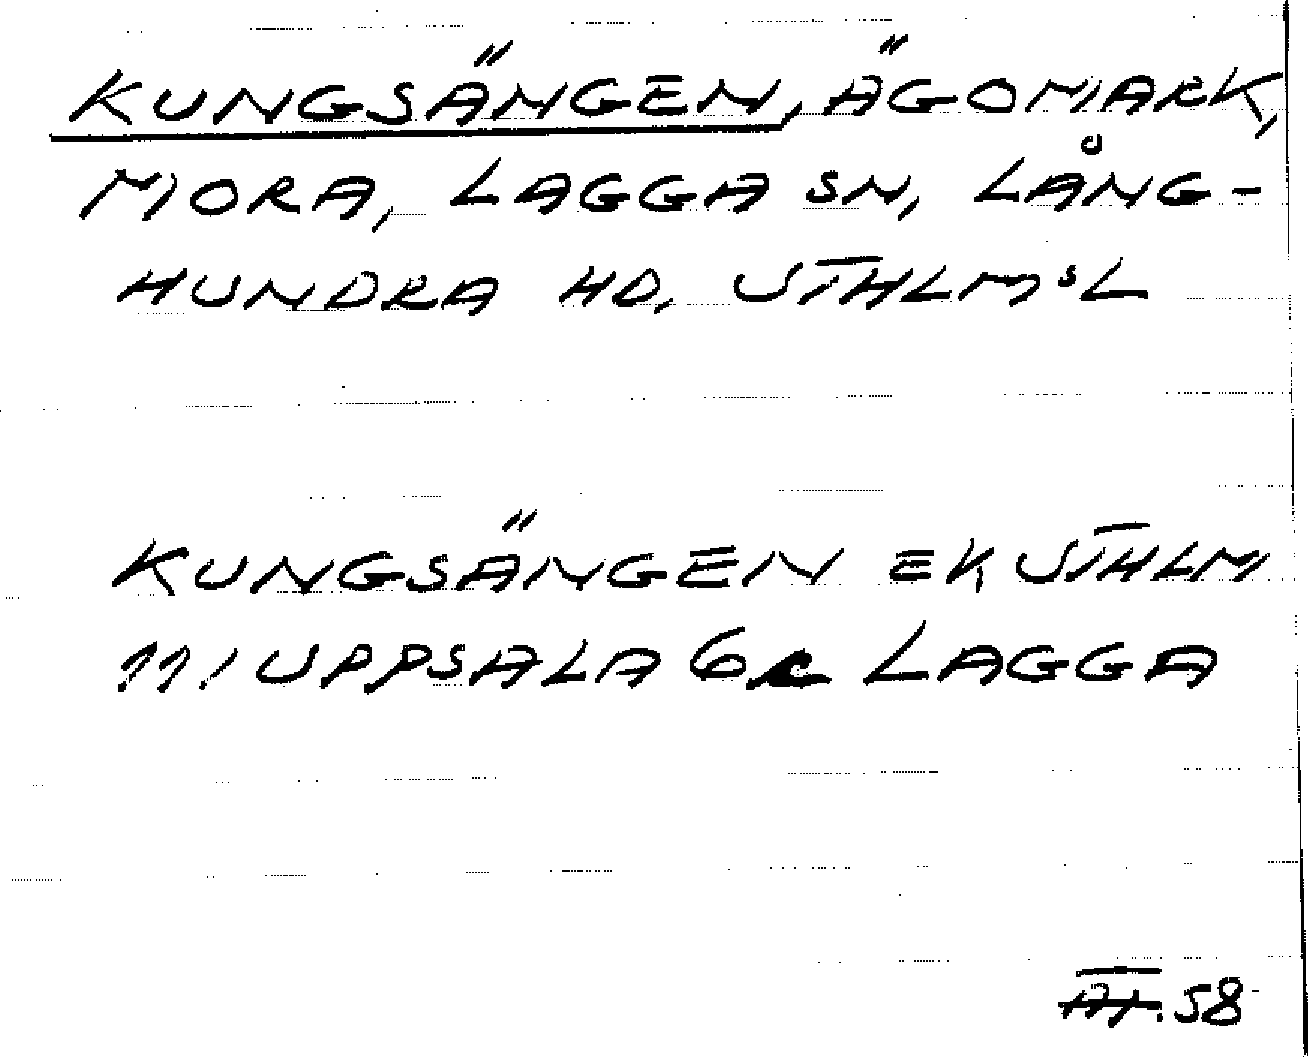 KUNGSÄNGEN, ÄGOMARK,
MORA, LAGGA SN, LÅNG-
HUNDRA HD, STHLMSL
KUNGSÄNGEN EK STHLM
111 UPPSALA 6c LAGGA
58